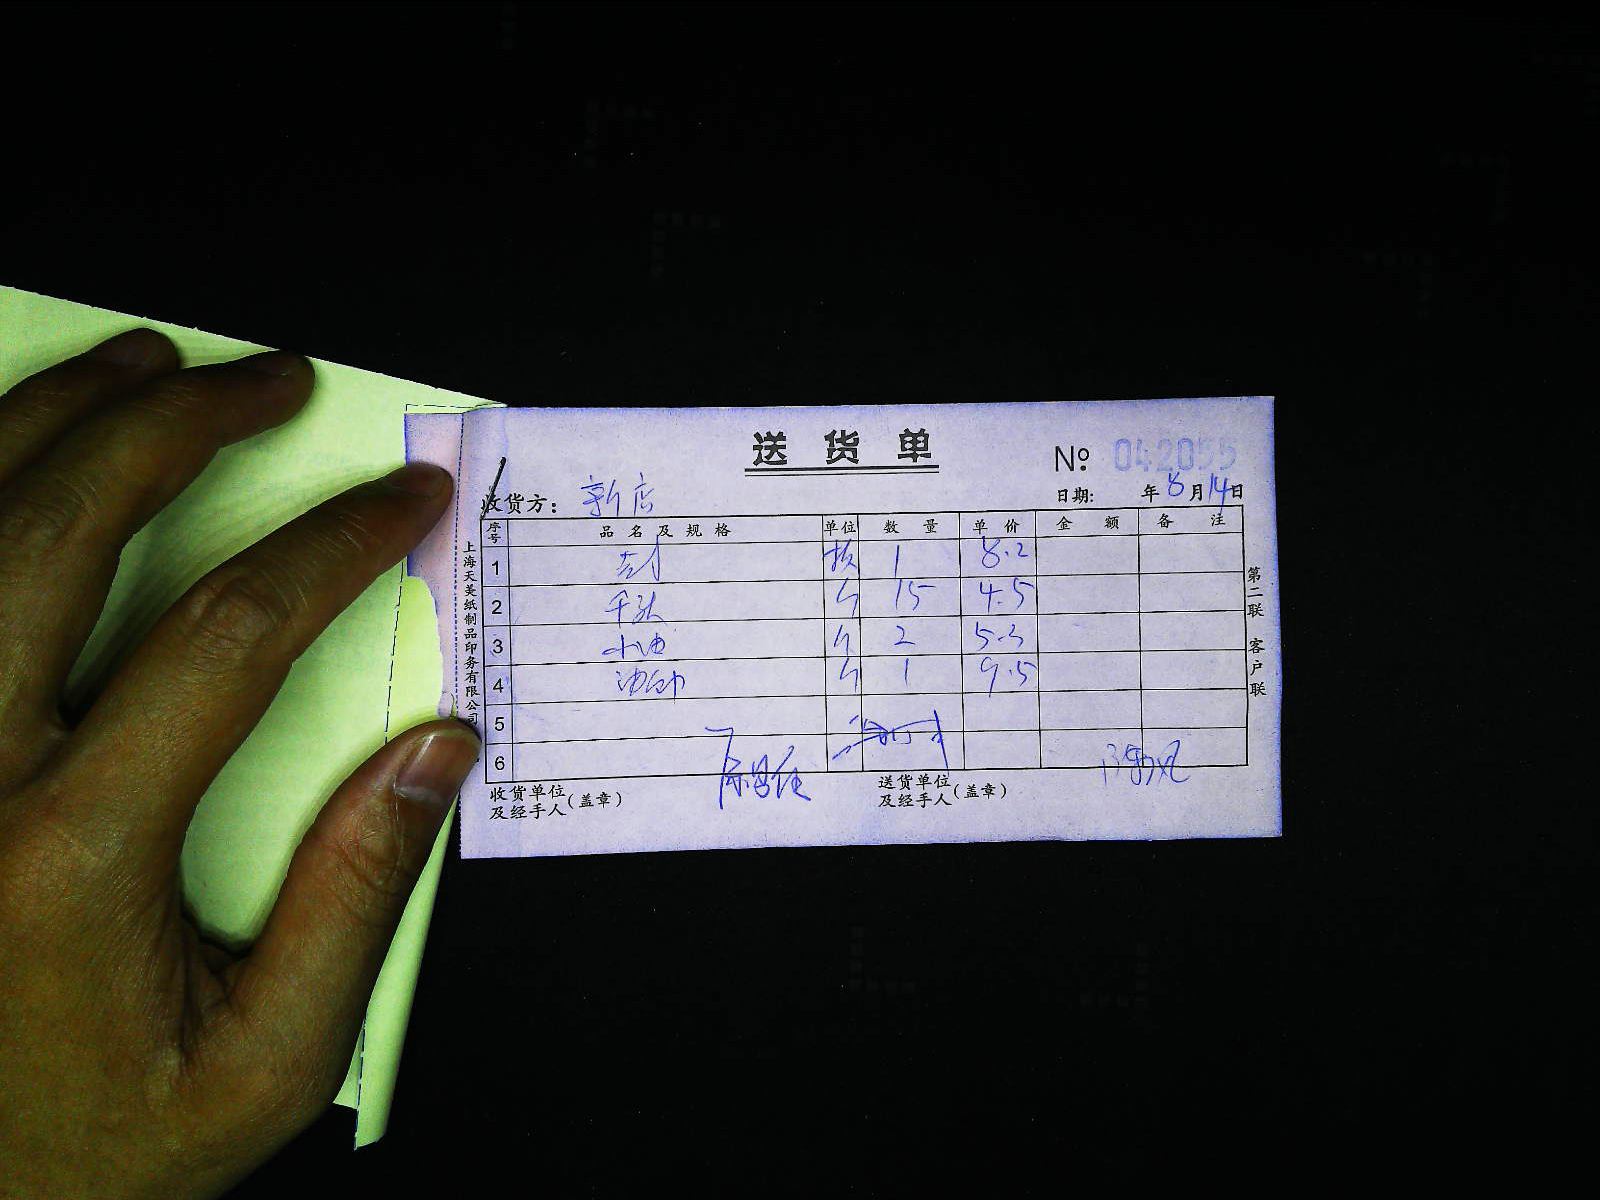 送货单
№ 042055
收货方: 新店
日期: 年 8 月 14 日
序号 品名及规格 单位 数量 单价 金额 备注
1 1 8.2
2 15 4.5
3 2 5.3
4 1 9.5
5
6
收货单位及经手人(盖章)
送货单位及经手人(盖章)
上海天美纸制品印务有限公司
第二联 客户联